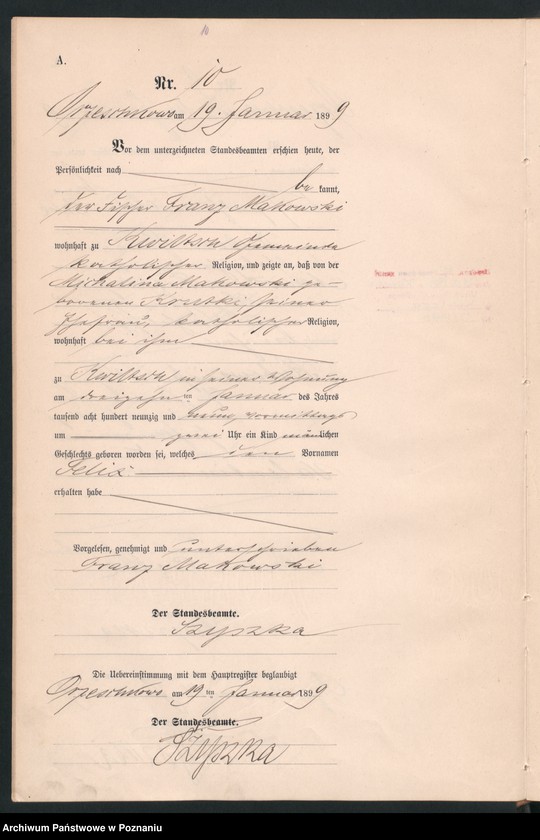 10
A.
Nr. 10
Orzeschkowo am 19. Januar 1899
Vor dem unterzeichneten Standesbeamten erschien heute, der
Persönlichkeit nach
be kannt,
der Fischer Franz Makowski
wohnhaft zu Kwiltsch Gemeinde
katholischer Religion, und zeigte an, daß von der
Michalina Makowski ge-
borenen Krutki seiner
Ehefrau, katholischer Religion,
wohnhaft bei ihm
zu Kwiltsch in seiner Wohnung
am dreizehn ten Januar des Jahres
tausend acht hundert neunzig und neun, vormittags
um zwei Uhr ein Kind männlichen
Geschlechts geboren worden sei, welches den Vornamen
Felix
erhalten habe
Vorgelesen, genehmigt und unterschrieben
Franz Makowski
Der Standesbeamte.
Szyszka
Die Uebereinstimmung mit dem Hauptregister beglaubigt
Orzeschkowo am 19 ten Januar 1899
Der Standesbeamte.
Szyszka
Archiwum Państwowe w Poznaniu